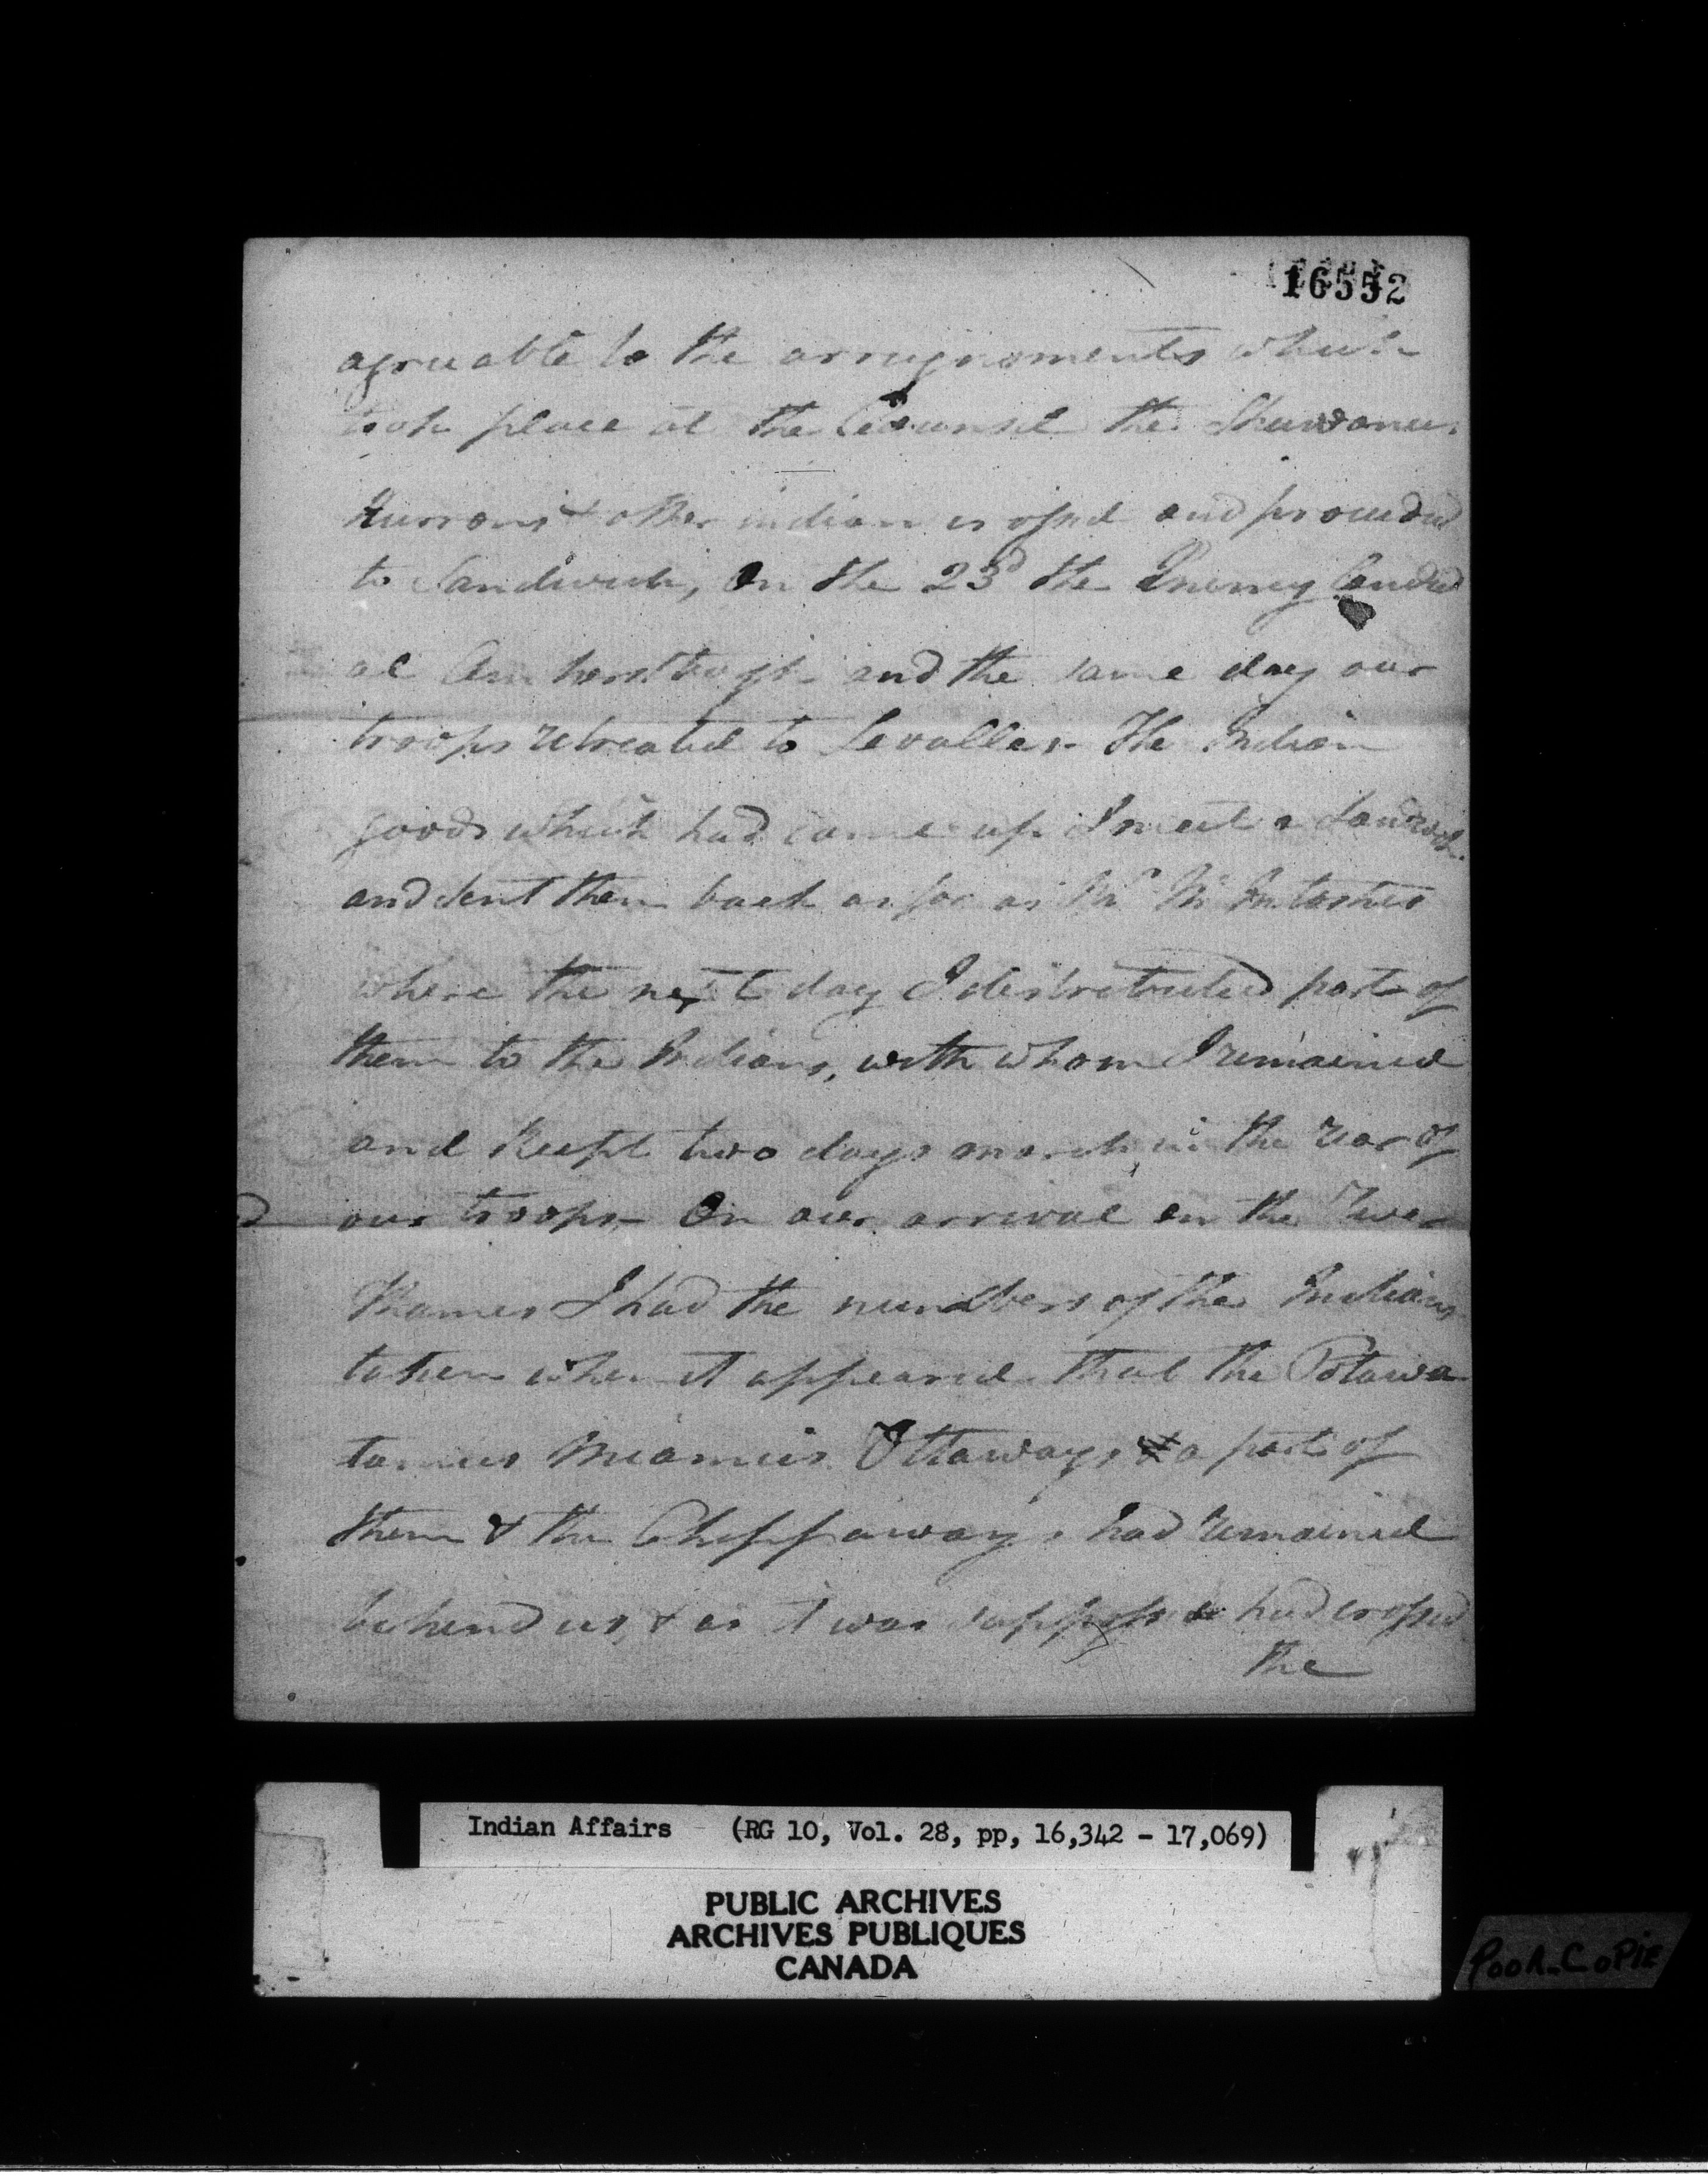 16552
agreeable to the arrengnements which
took place at the Counsel the Shuwanees
Hurrons & other indian crossed and proceeded
to Sandwich, On the 23d the Enemy landed
at Amherstburgh and the same day our
troops retreated to Levalles - The Indian
goods which had come up I meet a Sandwich
and sent them back as far as Mr McIntoshes
where the next day I destributed part of
them to the Indians, with whom I remained
and keept two days march in the rear of
our troops - On our arrival on the River
Thames I had the numbers of the Indians
taken when it appeared that the Potawa
tamies Miamies Ottaways & a part of
them & the Chippaways had remained
behend us, & as it was supposed had crossed
the
Indian Affairs (RG 10, Vol. 28, pp, 16,342 - 17,069)
PUBLIC ARCHIVES
ARCHIVES PUBLIQUES
CANADA
POOR-COPIE